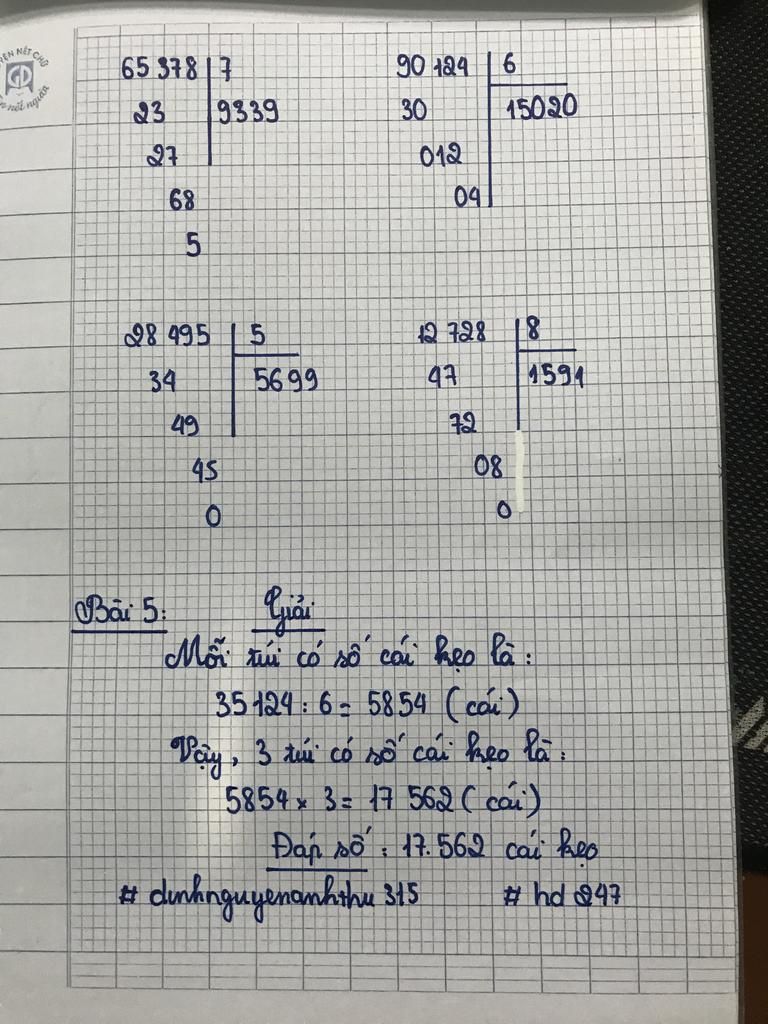 65 378 7
23 9339
27
68
5
90 124 6
30 15020
012
04
28 495 5
34 5699
49
45
0
12 728 8
47 1591
72
08
0
Bài 5: Giải
Mỗi túi có số cái kẹo là:
35 124 : 6 = 5854 (cái)
Vậy, 3 túi có số cái kẹo là:
5854 x 3 = 17 562 (cái)
Đáp số: 17.562 cái kẹo
# dinhnguyenanhthu 315 # hd 247